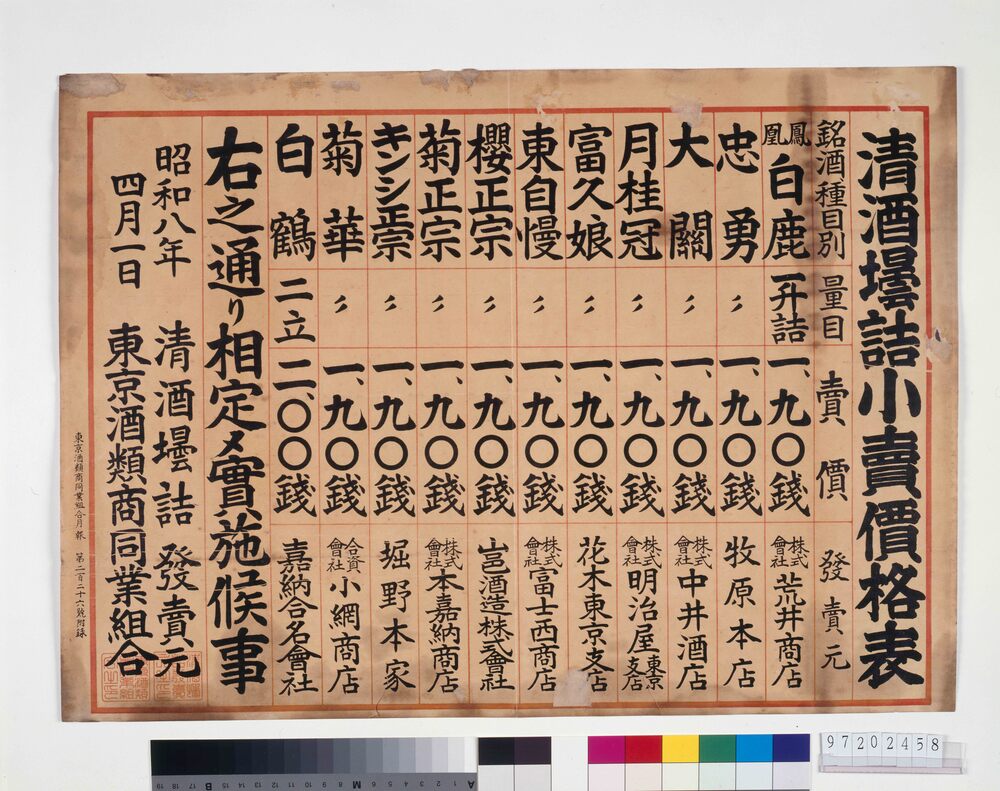 清酒壜詰小賣價格表
銘酒種目別 量目 賣價 發賣元
鳳凰白鹿 一升詰 一、九〇錢 株式會社荒井商店
忠勇 〃 一、九〇錢 牧原本店
大關 〃 一、九〇錢 株式會社中井酒店
月桂冠 〃 一、九〇錢 株式會社明治屋東京支店
富久娘 〃 一、九〇錢 花木東京支店
東自慢 〃 一、九〇錢 株式會社富士西商店
櫻正宗 〃 一、九〇錢 邑酒造株式會社
菊正宗 〃 一、九〇錢 株式會社本嘉納商店
キンシ正宗 〃 一、九〇錢 堀野本家
菊華 〃 一、九〇錢 合資會社小網商店
白鶴 二立 二、〇〇錢 嘉納合名會社
右之通り相定メ實施候事
昭和八年 清酒壜詰發賣元
四月一日 東京酒類商同業組合
東京酒類商同業組合月報 第二百二十六號附錄
97202458